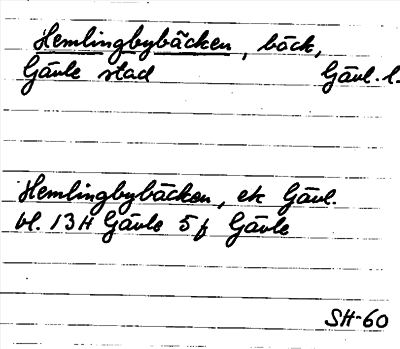 Hemlingbybäcken, bäck,
Gävle stad Gävl. l.
Hemlingbybäcken, ek Gävl.
bl. 13H Gävle 5f Gävle
SH-60